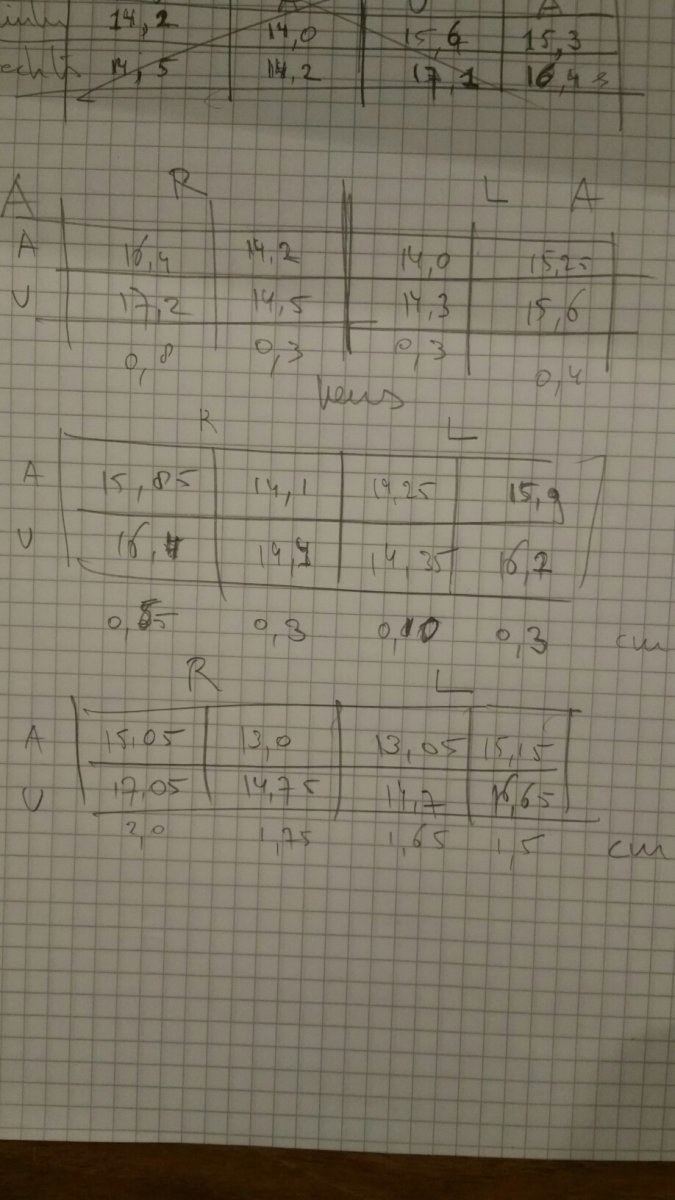 U A
14,2 14,0 15,6 15,3
14,5 14,2 17,1 16,4
A R L A
A 16,4 14,2 14,0 15,25
U 17,2 14,5 14,3 15,6
0,8 0,3 0,3 0,4
R L
A 15,85 14,1 14,25 15,9
U 16,4 14,4 14,35 16,2
0,55 0,3 0,10 0,3 cm
R L
A 15,05 13,0 13,05 15,15
U 17,05 14,75 14,7 16,65
2,0 1,75 1,65 1,5 cm